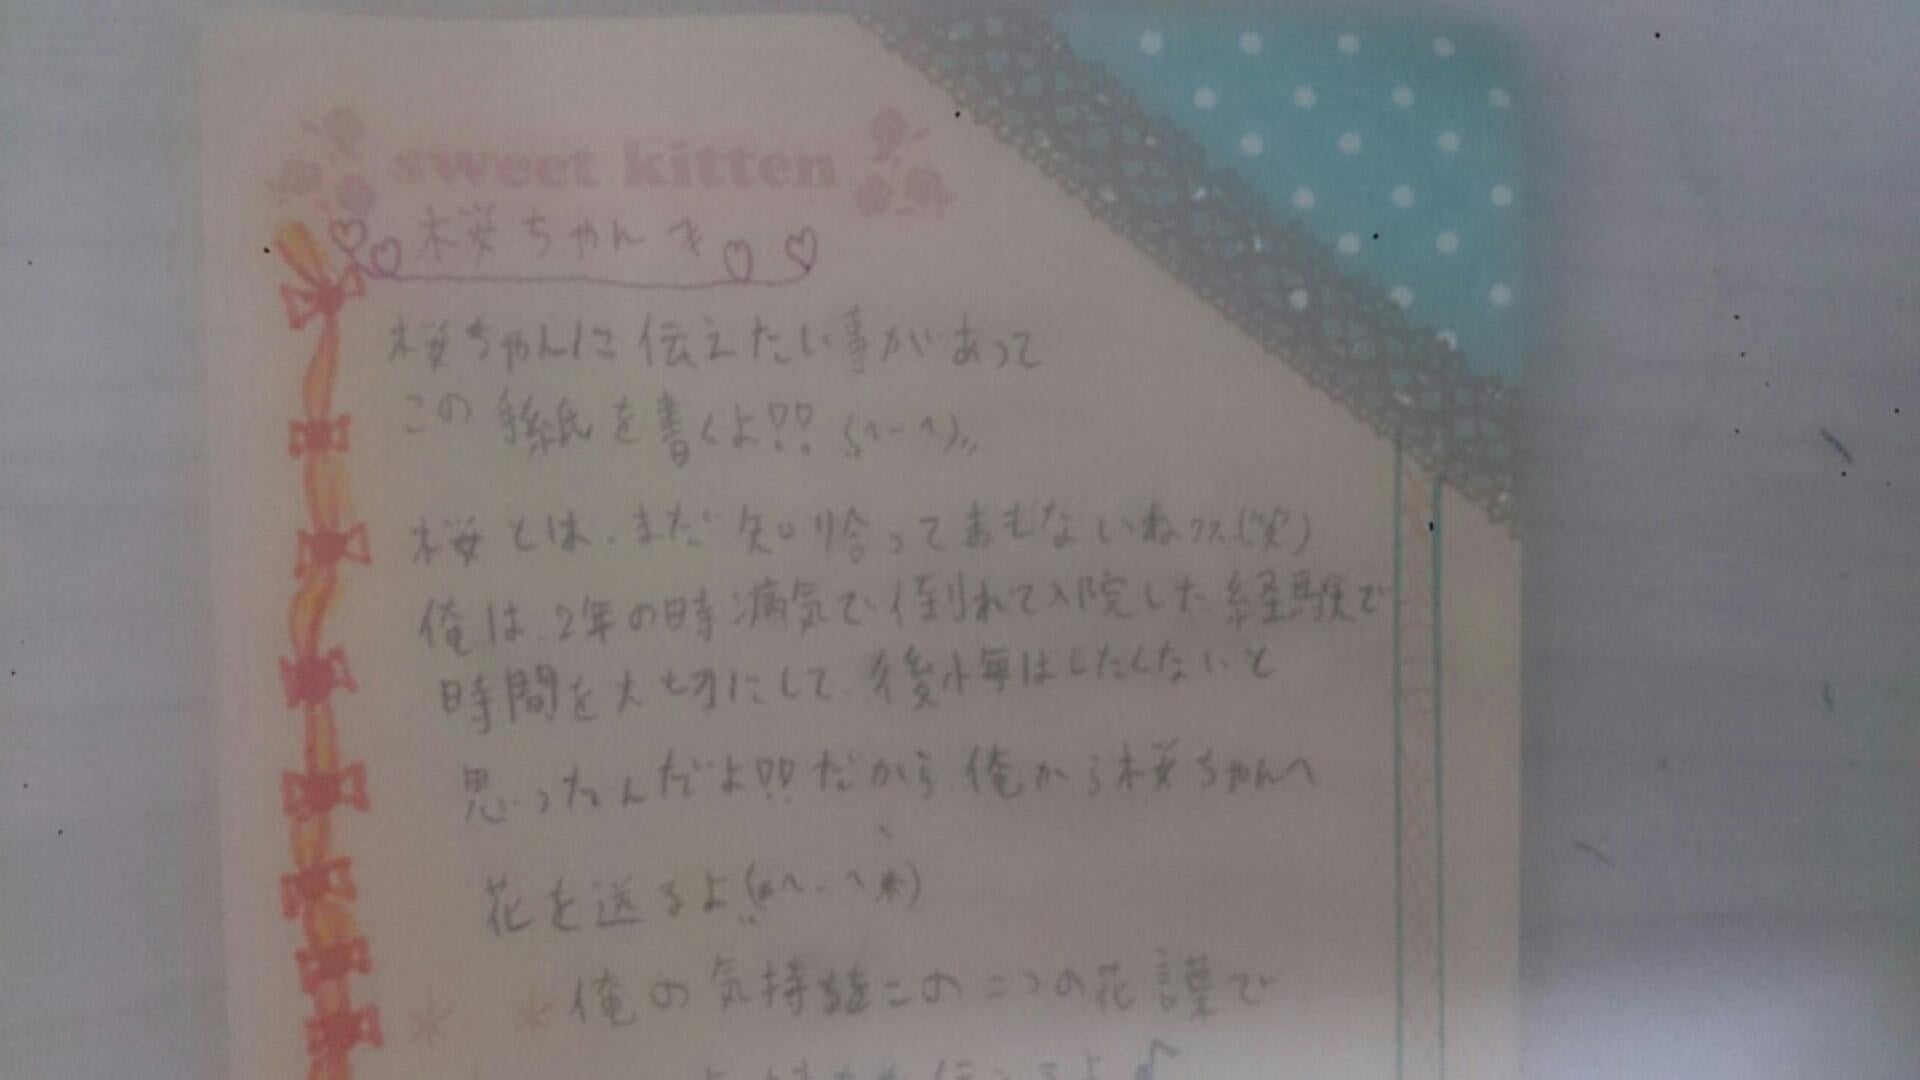 sweet kitten
桜ちゃんへ
桜ちゃんに伝えたい事があって
この手紙を書くよ!! (^-^)〃
桜とは、まだ知り合ってまもないねクス(笑)
俺は、2年の時 病気で倒れて入院した経験で
時間を大切にして 後悔はしたくないと
思ったんだよ!!だから 俺から桜ちゃんへ
花を送るよ!!(*^-^*)
* *俺の気持ちをこの二つの花言葉で
伝えるよ♪